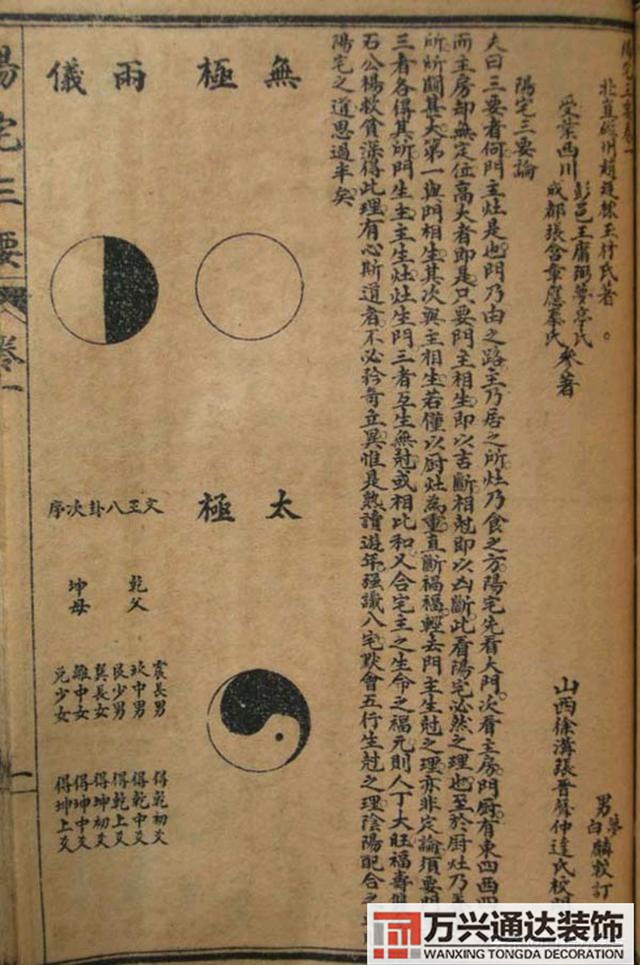 陽宅三要卷一
北直磁州趙廷棟玉材氏著
受業西川
彭邑王庸弼夢亭氏
成都張含章應奎氏
參著
山西徐溝張晉
仲達氏校
男夢
白麟校訂
陽宅三要論
夫曰三要者何門主灶是也門乃由之路主乃居之所灶乃食之方陽宅先看大門次看主房門厨有東四西四
而主房却無定位高大者即是只要門主相生即以吉斷相尅即以凶斷此看陽宅必然之理也至於厨灶乃
所
所關甚大第一與門相生其次與主相生若僅以厨灶為重直斷禍福輕去門主生尅之理亦非定論須要
三者各得其所門生主主生灶灶生門三者互生無尅或相比和又合宅主之生命之福元則人丁大旺福壽
石公楊救貧深得此理有心斯道者不必矜奇立異惟是熟讀遊年强識八宅默會五行生尅之理陰陽配合之
陽宅之道思過半矣
無極
兩儀
太極
文王八卦次序
乾父
坤母
震長男 得乾初爻
坎中男 得乾中爻
艮少男 得乾上爻
巽長女 得坤初爻
離中女 得坤中爻
兌少女 得坤上爻
陽宅三要
卷一
一
万兴通达装饰
WANXING TONGDA DECORATION